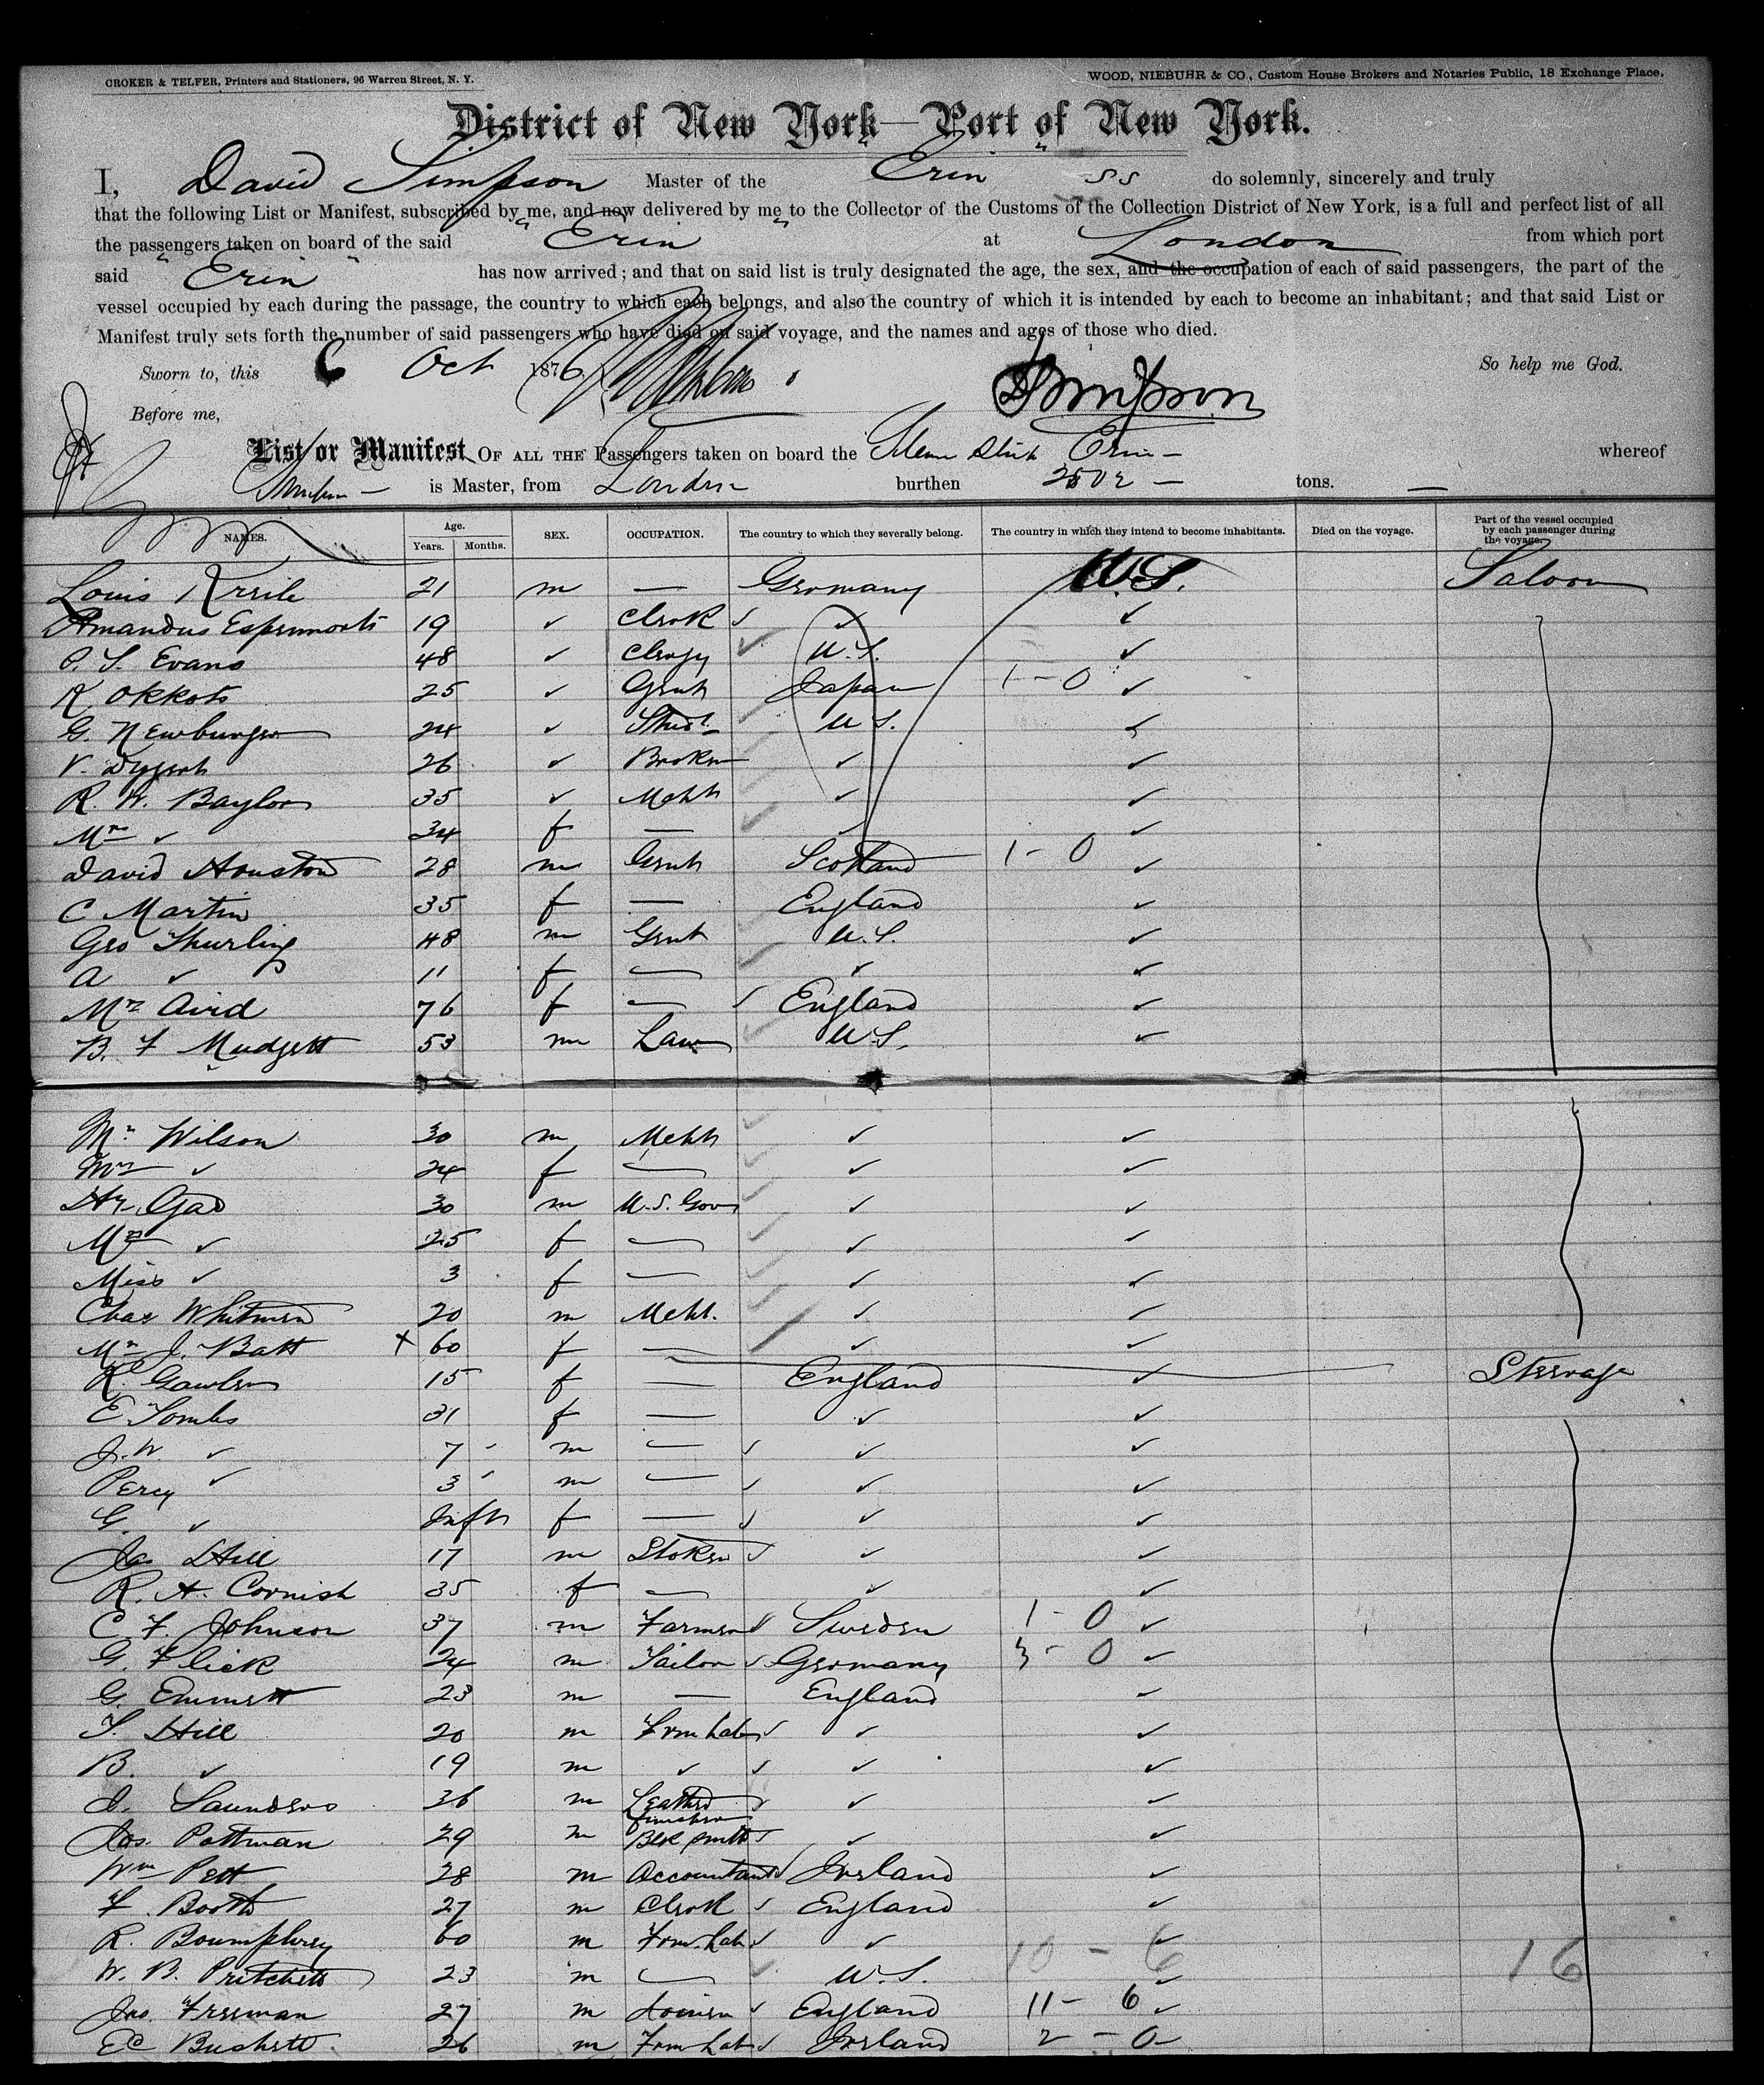 CROKER & TELFER, Printers and Stationers, 96 Warren Street, N. Y.
WOOD, NIEBUHR & CO., Custom House Brokers and Notaries Public, 18 Exchange Place.
District of New York—Port of New York.
I, David Simpson Master of the Erin SS do solemnly, sincerely and truly
that the following List or Manifest, subscribed by me, and now delivered by me to the Collector of the Customs of the Collection District of New York, is a full and perfect list of all
the passengers taken on board of the said Erin at London from which port
said Erin has now arrived; and that on said list is truly designated the age, the sex, and the occupation of each of said passengers, the part of the
vessel occupied by each during the passage, the country to which each belongs, and also the country of which it is intended by each to become an inhabitant; and that said List or
Manifest truly sets forth the number of said passengers who have died on said voyage, and the names and ages of those who died.
Sworn to, this 6 Oct 1876 So help me God.
Before me, D Simpson
List or Manifest OF ALL THE Passengers taken on board the Steam Ship Erin whereof
Simpson is Master, from London burthen tons.
NAMES. Age. Years. Months. SEX. OCCUPATION. The country to which they severally belong. The country in which they intend to become inhabitants. Died on the voyage. Part of the vessel occupied by each passenger during the voyage.
Louis 21 m — Germany U.S. Saloon
Amandus 19 ✓ Clerk ✓ ✓ ✓
P. S. Evans 48 ✓ Clergy ✓ U.S. ✓
K. Okkots 25 ✓ Gent Japan 1-0 ✓
G. Newburger 24 ✓ Stud U.S. ✓
V. 26 ✓ Broker ✓ ✓
R. W. Baylor 35 ✓ Mcht ✓ ✓
Mrs ✓ 34 f — ✓ ✓
David Houston 28 m Gent Scotland 1-0 ✓
C Martin 35 f — England ✓
Geo Thurling 48 m Gent U.S. ✓
A ✓ 11 f — ✓ ✓
Mrs Aird 76 f — ✓ England ✓
B. F Mudgett 53 m Law U.S. ✓
Mr Wilson 30 m Mcht ✓ ✓
Mrs ✓ 24 f — ✓ ✓
Gad 30 m U.S. Gov ✓ ✓
Mrs ✓ 25 f — ✓ ✓
Miss ✓ 3 f — ✓ ✓
Chas Whitman 20 m Mcht. ✓ ✓
Mrs J. Batt X 60 f — ✓ ✓
R Gawler 15 f — England ✓ Steerage
E. Tombs 31 f — ✓ ✓
J. W. ✓ 7 m — ✓ ✓ ✓
Percy ✓ 3 m — ✓ ✓ ✓
G. ✓ Inft f — ✓ ✓ ✓
Jas Hill 17 m Stoker ✓ ✓ ✓
R. A. Cornish 35 f — ✓ ✓
C. F. Johnson 37 m Farmer ✓ Sweden 1-0 ✓
G. Flick 24 m Tailor ✓ Germany 3-0 ✓
G. Emmett 23 m — England ✓
T. Hill 20 m Frm Lab ✓ ✓ ✓
B. ✓ 19 m ✓ ✓ ✓ ✓
J. Saunders 36 m Leather finisher ✓ ✓ ✓
Jos. Pottman 29 m Blk smith ✓ ✓ ✓
Wm Pett 28 m Accountant ✓ Ireland ✓
F. Booth 27 m Clerk ✓ England ✓
R. Boumphrey 60 m Frm Lab ✓ ✓ ✓
W. B. Pritchett 23 m — U.S. 10-6 ✓ 16
Jno. Freeman 27 m Joiner ✓ England 11-6 ✓
Ed Buckett 26 m Frm Lab ✓ Ireland 2-0